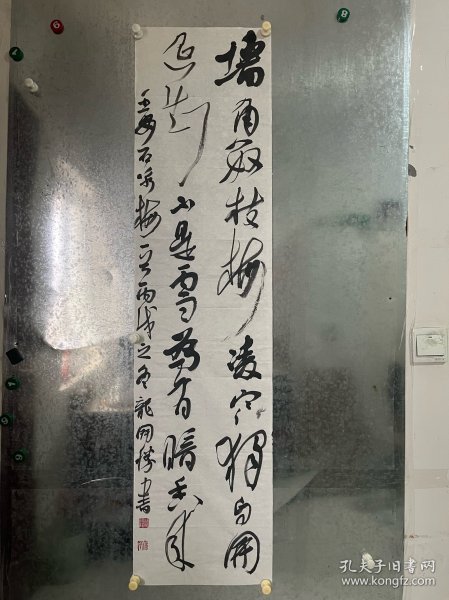 墙角数枝梅凌寒独自开
遥知不是雪为有暗香来
王安石咏梅一首丙戌之冬龙开胜书
孔夫子旧书网
www.kongfz.com